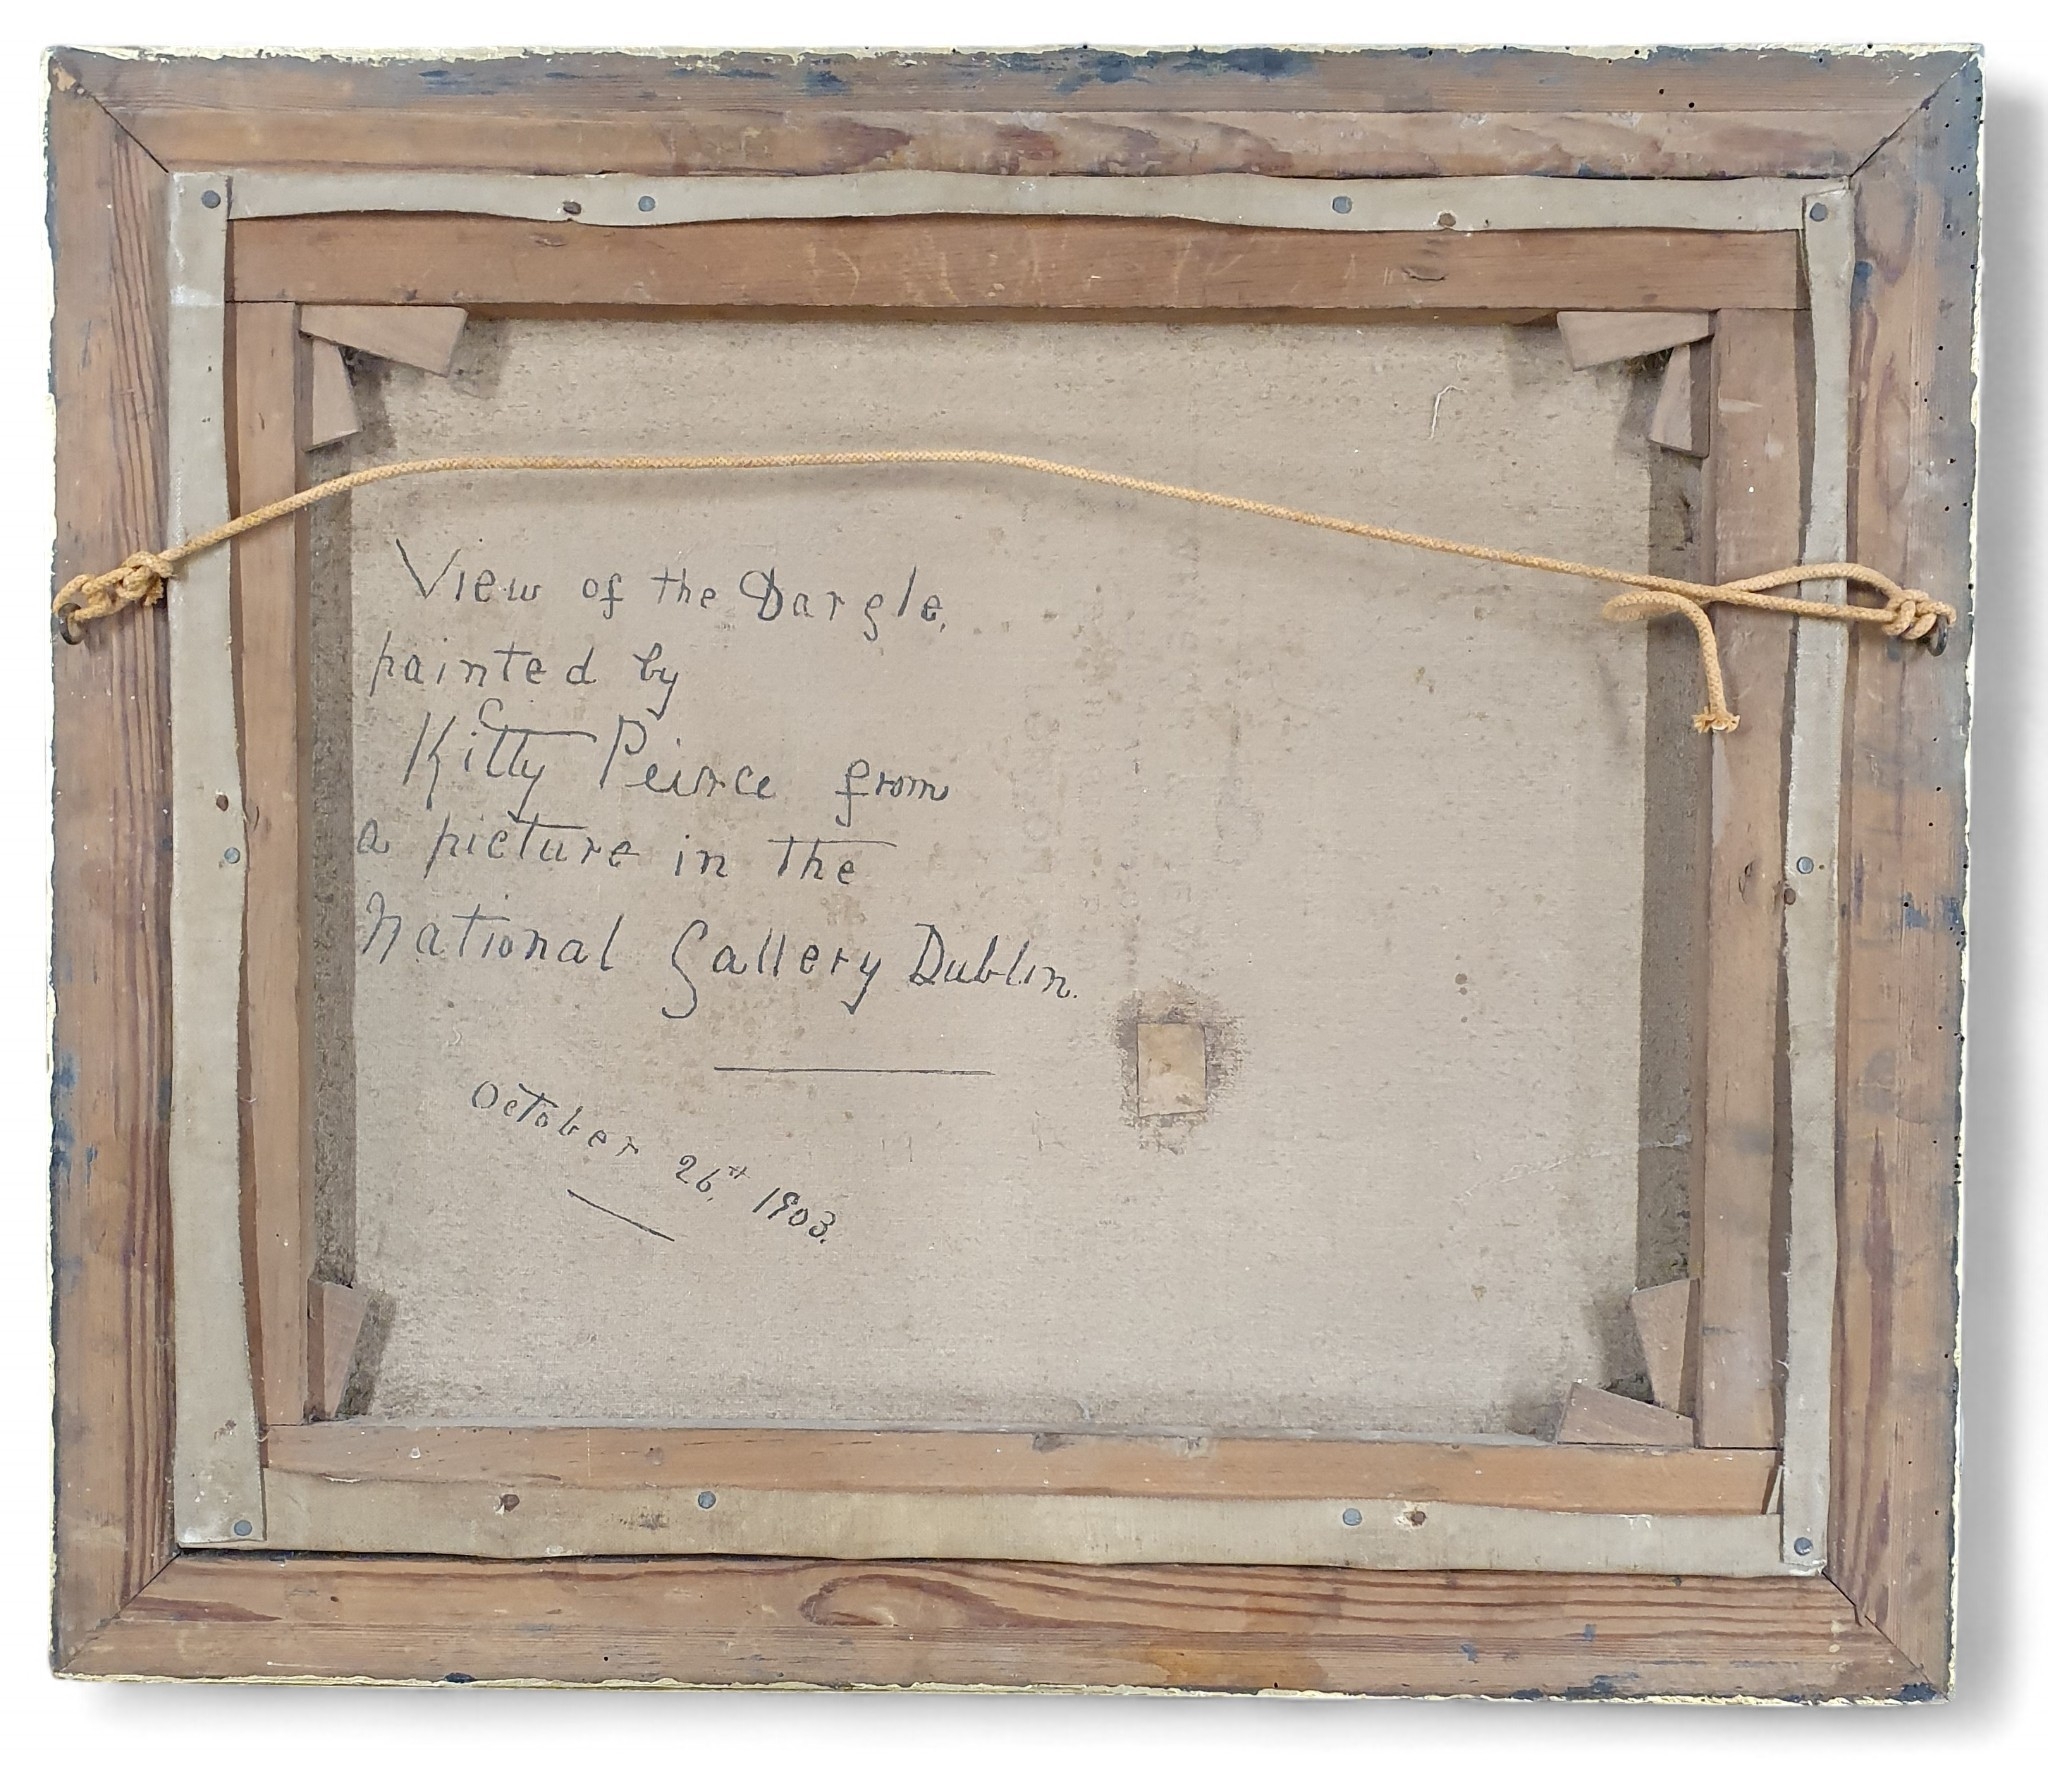 View of the Dargle,
painted by
Kitty Peirce from
a picture in the
National Gallery Dublin.
October 26th, 1903.